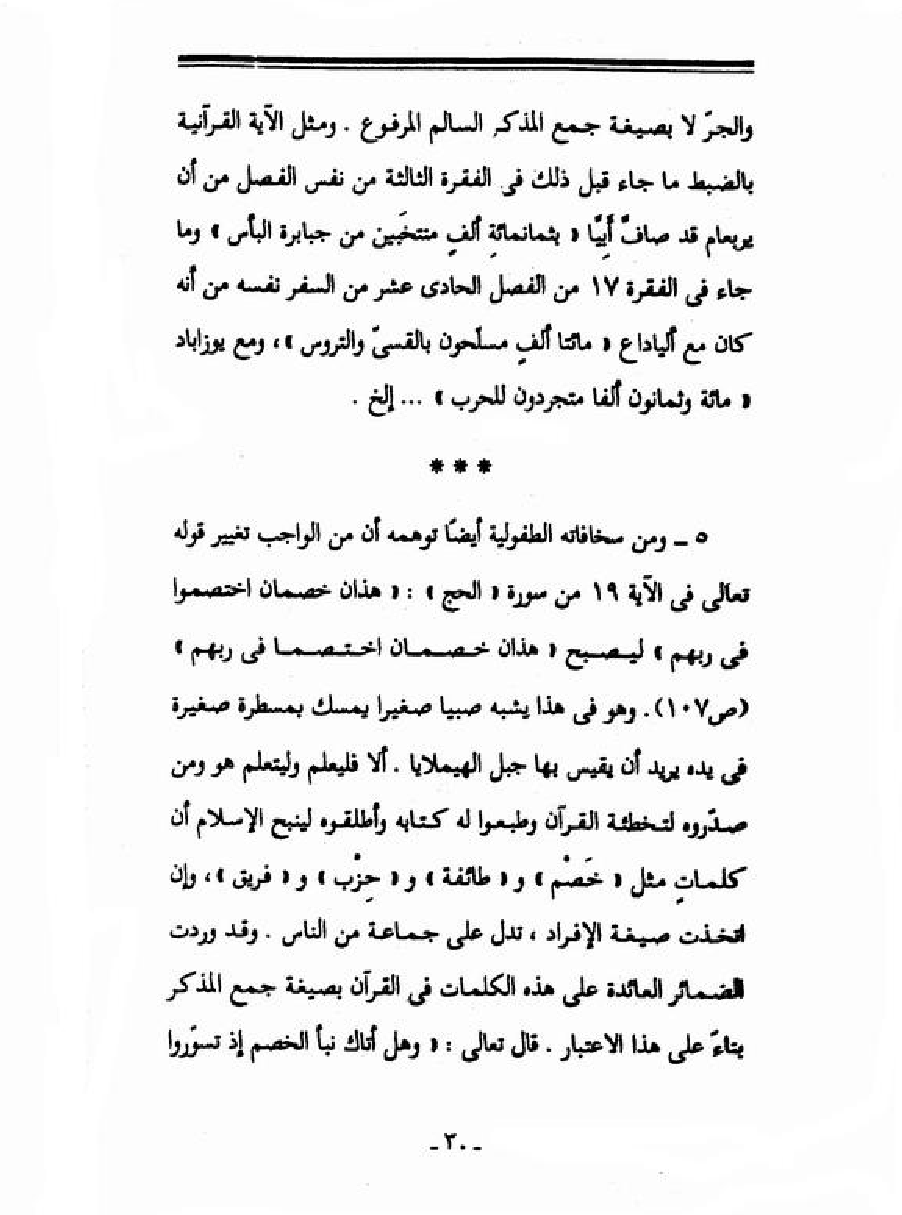 والجرّ لا بصيغة جمع المذكر السالم المرفوع . ومثل الآية القرآنية
بالضبط ما جاء قبل ذلك فى الفقرة الثالثة من نفس الفصل من أن
يربعام قد صافّ أَبِيًّا « بثمانمائةِ ألفٍ منتخَبين من جبابرة البأس » وما
جاء فى الفقرة ١٧ من الفصل الحادى عشر من السفر نفسه من أنه
كان مع ألياداع « مائتا ألفٍ مسلّحون بالقسىّ والتروس » ، ومع يوزاباد
« مائة وثمانون ألفا متجردون للحرب » ... إلخ .
* * *
٥ ــ ومن سخافاته الطفولية أيضًا توهمه أن من الواجب تغيير قوله
تعالى فى الآية ١٩ من سورة « الحج » : « هذان خصمان اختصموا
فى ربهم » ليصبح « هذان خصمان اختصما فى ربهم »
(ص١٠٧) . وهو فى هذا يشبه صبيا صغيرا يمسك بمسطرة صغيرة
فى يده يريد أن يقيس بها جبل الهيملايا . ألا فليعلم وليتعلم هو ومن
صدّروه لتخطئة القرآن وطبعوا له كتابه وأطلقوه لينبح الإسلام أن
كلماتٍ مثل « خَصْم » و « طائفة » و « حِزْب » و « فريق » ، وإن
اتخذت صيغة الإفراد ، تدل على جماعة من الناس . وقد وردت
الضمائر العائدة على هذه الكلمات فى القرآن بصيغة جمع المذكر
بناءً على هذا الاعتبار . قال تعالى : « وهل أتاك نبأ الخصم إذ تسوّروا
ــ ٣٠ ــ